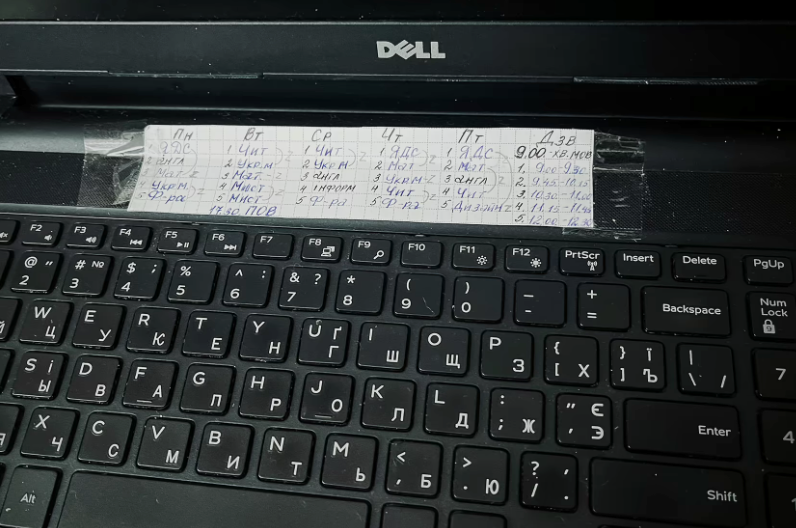 DELL
Пн Вт Ср Чт Пт Дзв
1 ЯДС 1 Чит 1 Чит 1 ЯДС 1 ЯДС 9.00 -хв.мов
2 англ 2 Укр.м 2 Укр.м 2 Мат 2 Мат 1. 9.00-9.30
3 Мат-z 3 Мат.-z 3 англ 3 Укр.м 3 англ 2. 9.45-10.15
4 Укр.м 4 Мист 4 інформ 4 Чит 4 Чит 3. 10.30-11.00
5 Ф-ра 5 Мист 5 Ф-ра 5 Ф-ра 5 Дизайн 4. 11.15-11.45
17.30 ПОВ 5. 12.00-12.30
F2 F3 F4 F5 F6 F7 F8 F9 F10 F11 F12 PrtScr Insert Delete PgUp
@ " 2 # № 3 $ ; 4 % 5 ^ : 6 & ? 7 * 8 ( 9 ) 0 _ - + = Backspace Num Lock
Й W Ц E У R К T Е Y Н U Ґ Г I Ш O Щ P З { [ Х } ] Ї Ъ | \ / 7
S І Ы D В F А G П H Р J О K Л L Д : ; Ж " ' Є Э Enter 4
Я X Ч C С V М B И N Т M Ь < , Б > . Ю ? / , . Shift
Alt